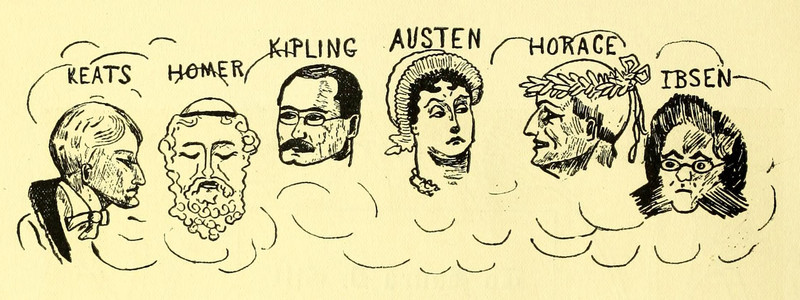 KEATS
HOMER
KIPLING
AUSTEN
HORACE
IBSEN